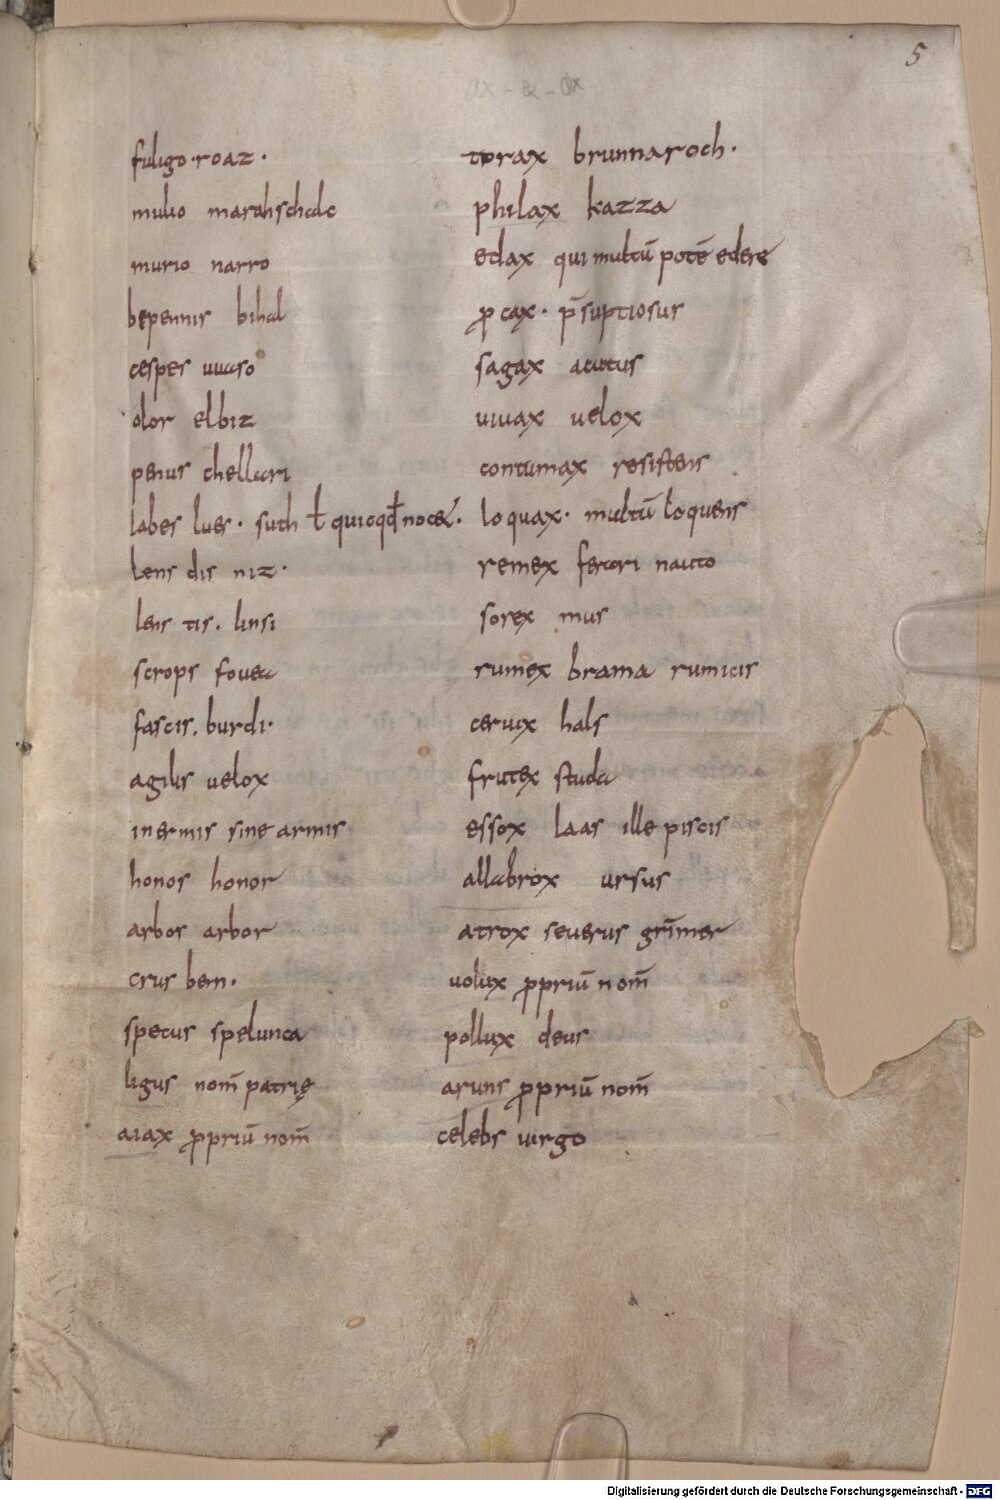 5
fuligo·roaz·
mulio marahschalc
murio narro
bepennis bihal
cespes uuaso
olor elbiz
penus chellari
labes lues· suth ł quicqđ nocet·
lens dis niz·
lens tis. linsi
scrops fouea
fascis. burdi·
agilis uelox
inermis sine armis
honos honor
arbos arbor
crus bein·
specus spelunca
ligus nom̄ patrię
aiax ꝓpriū nom̄
torax brunnaroch·
philax kazza
edax qui multū potē edere
ꝓcax· p̄suptiosus
sagax acutus
uiuax uelox
contumax resistens
loquax· multū loquens
remex feriori nauto
sorex mus
rumex brama rumicis
ceruix hals
frutex studa
essox laas ille piscis
allabrox ursus
atrox seuerus grīmer
uolux ꝓpriū nom̄
pollux deus
aruns ꝓpriū nom̄
celebs uirgo
Digitalisierung gefördert durch die Deutsche Forschungsgemeinschaft - DFG